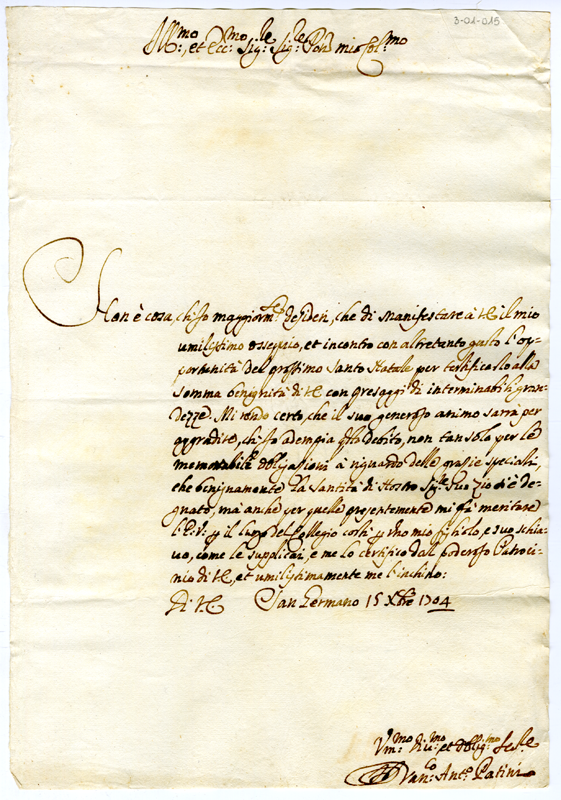 3-01-015
Ill.mo, et Ecc.mo Sig.re Sig.re Pron mio Col.mo
Non è cosa, ch'io maggiorm.te desideri, che di manifestare à V.E. il mio
umilissimo ossequio, et incontro con altretanto gusto l'op-
portunità del prossimo Santo Natale per testificarlo alla
somma benignità di V.E. con presaggi di interminabili gran-
dezze. Mi rendo certo, che il suo generoso animo sarrà per
aggradire, ch'io adempia q.sto debito, non tan solo per le
memorabili obligazioni à riguardo delle grazie speciali,
che benignamente la Santità di Nostro Sig.re suo zio si è de-
gnato, mà anche per quelle presentemente mi fà meritare
l'E.V. p il luogo del Collegio costì p uno mio figliolo, e suo schia-
vo, come le supplicai, e me lo certifico dal poderoso Patroci-
nio di V.E., et umilissimamente me l'inchino:
Di V.E. San Germano 15 Xbre 1704
Um.mo Div.mo et oblig.mo Ser.re
Ant.o Patini